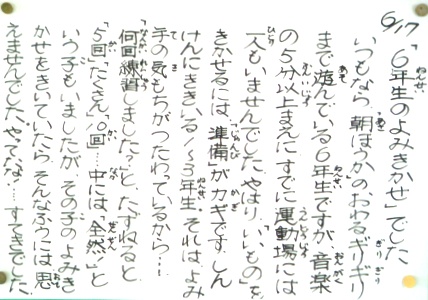 6/17「6年生のよみきかせ」でした
いつもなら、朝ほうかのおわるギリギリ
まで遊んでいる6年生ですが、音楽
の5分以上まえに、すでに運動場には
一人もいませんでした。やはり、いいものを
きかせるには、「準備」がカギです。しん
けんにききいる1〜3年生。それは、よみ
手の気もちがつたわっているから…。
「何回練習しました?」と、たずねると
「5回」「たくさん」「2回」…中には「全然」と
いう子もいましたが、その子のよみき
かせをきいていたら、そんなふうには思
えませんでした。やってたな…。すてきでした